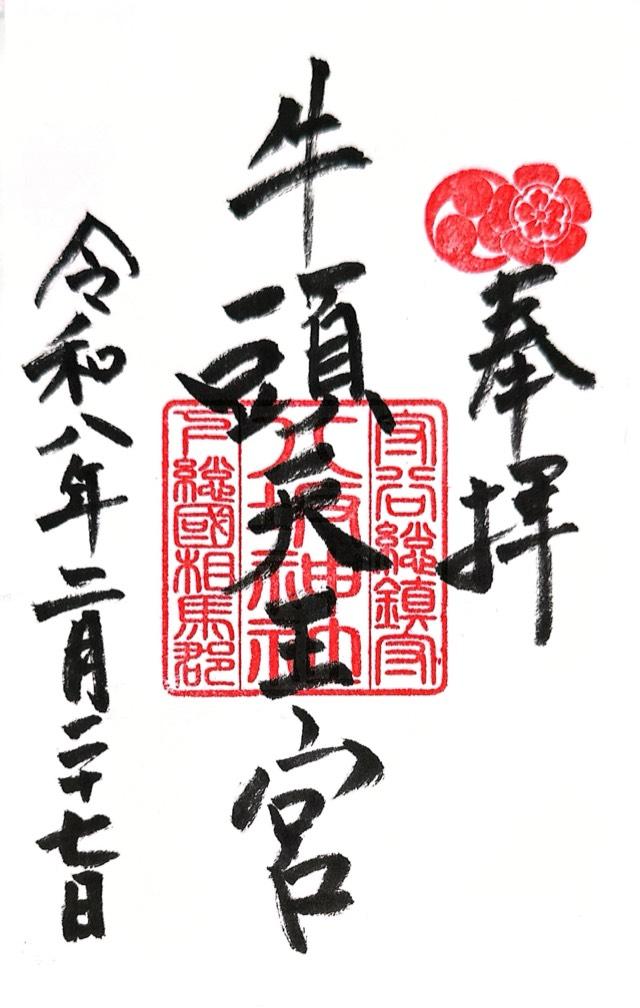 奉拝
牛頭天王宮
守谷総鎮守
八坂神社
下総國相馬郡
令和八年二月二十七日